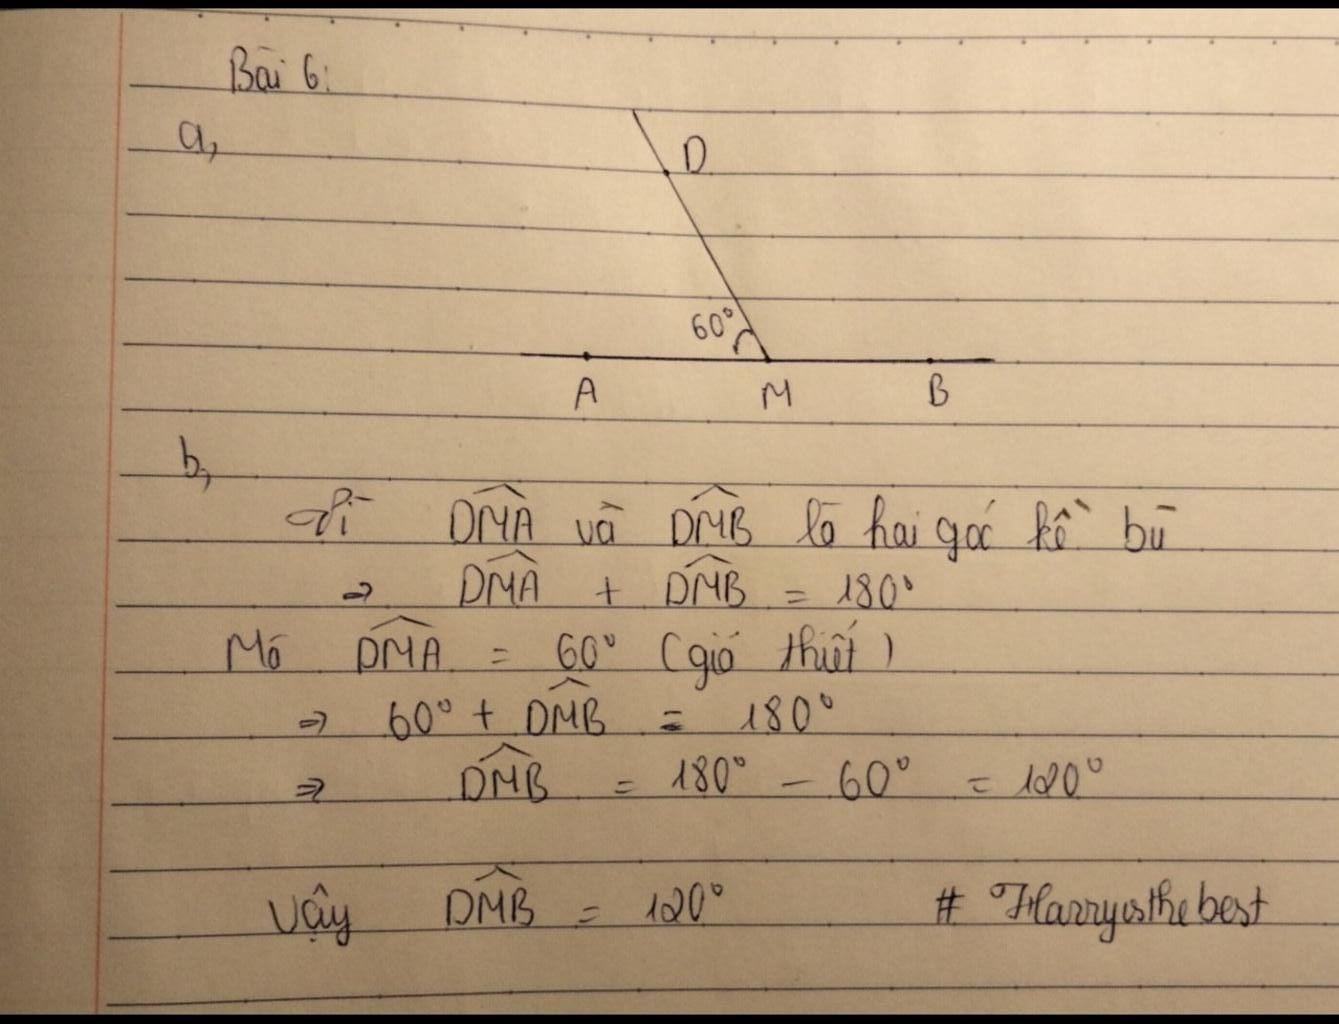 Bài 6:
a,
D
60°
A M B
b,
Vì DMA và DMB là hai góc kề bù
⇒ DMA + DMB = 180°
Mà DMA = 60° (giả thiết)
⇒ 60° + DMB = 180°
⇒ DMB = 180° - 60° = 120°
Vậy DMB = 120° # Harryisthebest